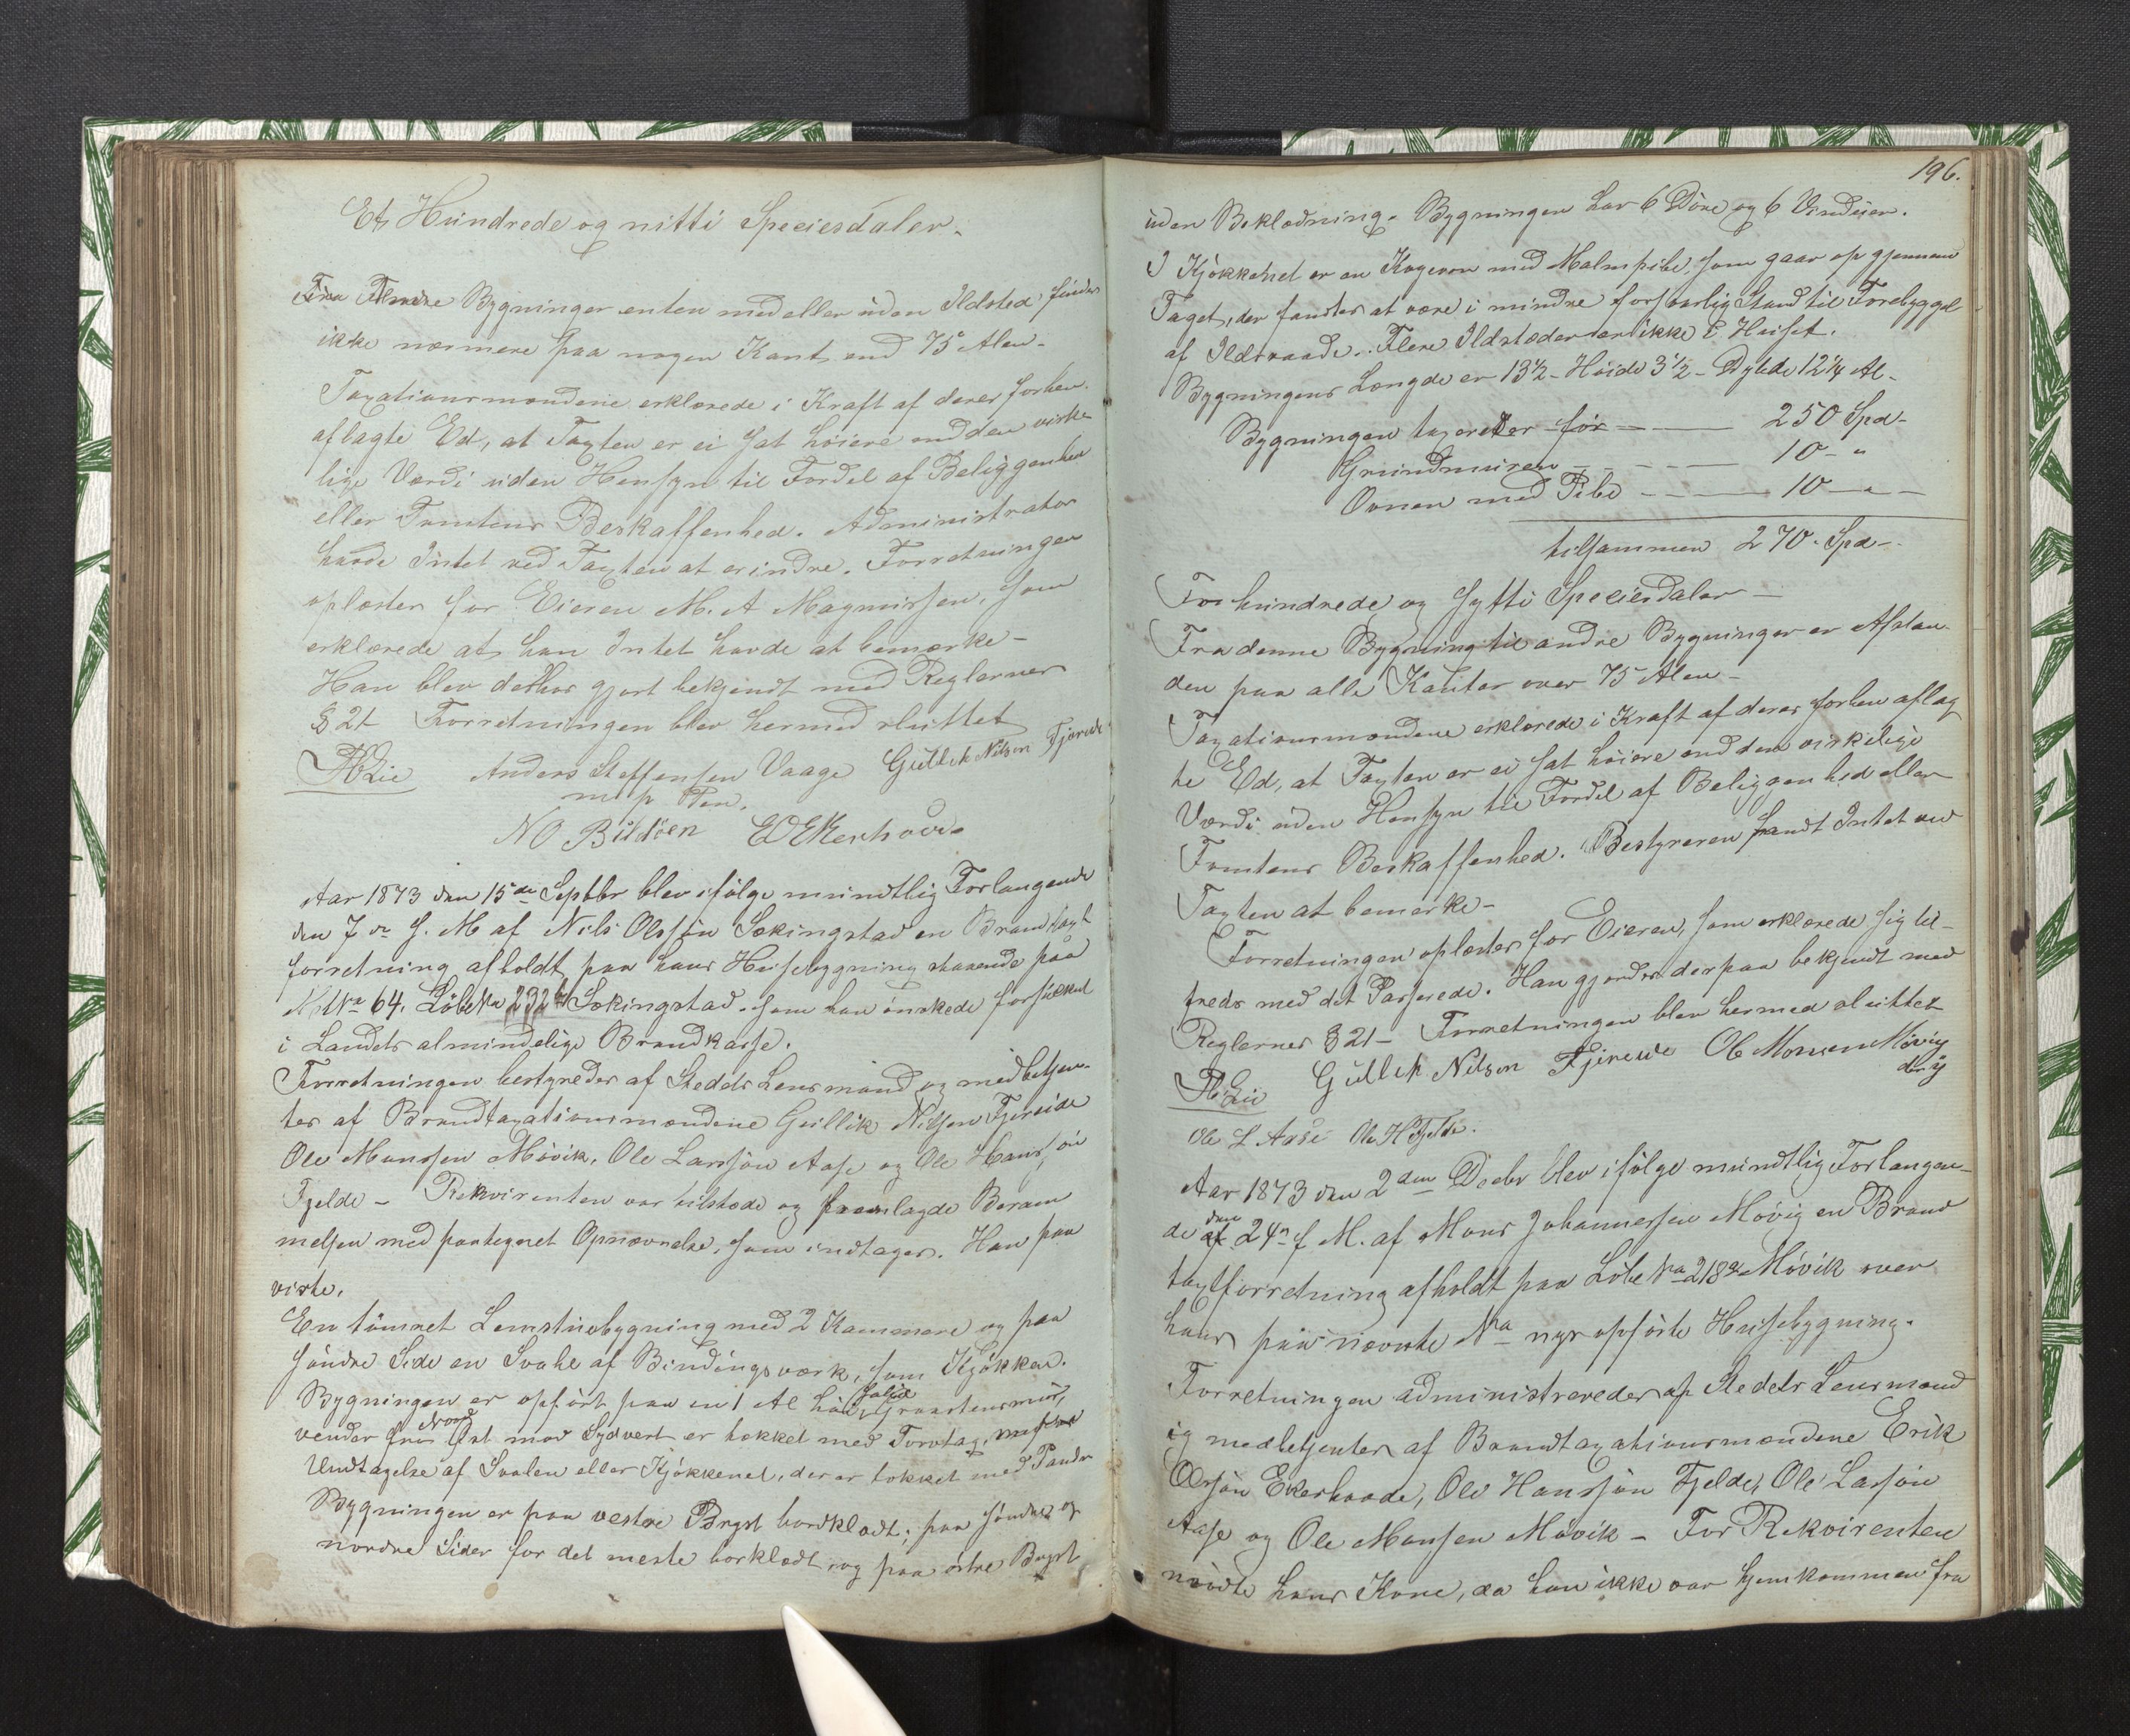 Et Hundrede og nitti Speciesdaler.
Fra Andre Bygninger enten med eller uden Ildsted, findes
ikke nærmere paa nogen Kant end 75 Alen.
Taxationsmændene erklærede i Kraft af deres forhen
aflagte Ed, at Taxten er ei sat høiere end den virke
lige Værdi uden Hensyn til Fordel af Beliggenhed
eller Tomtens Beskaffenhed. Administrator
havde Intet ved Taxten at erindre. Forretningen
oplæstes for Eieren M. A Magnussen, som
erklærede at han Intet havde at bemærke –
Han blev derhos gjort bekjendt med Reglernes
§ 21 Forretningen blev hermed sluttet
Lie Anders Steffensen Vaage Gullik Nilsen Fjereide
m f p Pen.
NO Bildöen EOEkerhovd
Aar 1873 den 15de Septbr blev ifølge mundtlig Forlangende
den 7de f. M af Nils Olssøn Søkingstad en Brandtaxt
forretning afholdt paa hans Husebygning staaende paa
M Nr 64. Löbe Nr 232 Sökingstad. som han ønskede forsikret
i Landets almindelige Brandkasse.
Forretningen bestyredes af Stedets Lensmand og medbetjen-
tes af Brandtaxationsmændene Gullik Nilsen Fjereide
Ole Monssen Møvik, Ole Larssøn Aase og Ole Hanssøn
Fjelde – Rekvirenten var tilstede og fremlagde Beram
melsen med paategnet Opnævnelse, som indtages. Han paa
viste,
En tömret Lemstuebygning med 2 Kammere og paa
søndre Side en Svale af Bindingsværk, som Kjøkken.
Bygningen er opført paa en 1 Al høi, solid Graastensmur,
vender fra Nord Øst mod Sydvest er tækket med Torvtag, med
Undtagelse af Svalen eller Kjøkkenet, der er tækket med Pander
Bygningen er paa vestre Bryst bordklædt; paa søndre og
nordre Sider for det meste borklædt, og paa østre Bryst
196.
uden Beklædning. Bygningen har 6 Døre og 6 Vinduer.
I Kjøkkenet er en Kogeovn med Malmpibe, som gaar op gjennem
Taget, der fandtes at være i mindre forsvarlig Stand til Forebyggel
af Ildsvaade. Flere Ildstæder er ikke i Huset.
Bygningens Længde er 13½ – Høide 3½ – Dybde 12¼ Al –
Bygningen taxeredes for – – 250 Spd –
Grundmuren – – – – – 10 – "
Ovnen med Pibe – – – – 10 – " –
tilsammen 270. Spd –
To hundrede og sytti Speciesdaler –
Fra denne Bygning til andre Bygninger er Afstan
den paa alle Kanter over 75 Alen –
Taxationsmændene erklærede i Kraft af deres forhen aflag
te Ed, at Taxten er ei sat høiere end den virkelige
Værdi uden Hensyn til Fordel af Beliggenhed eller
Tomtens Beskaffenhed. Bestyreren fandt Intet ved
Taxten at bemærke –
Forretningen oplæstes for Eieren, som erklærede sig til-
freds med det Passerede. Han gjordes derpaa bekjendt med
Reglernes § 21 – Forretningen blev hermed sluttet
Lie Gullik Nilsen Fjereide Ole Monsen Mövig
Ole L Aase Ole H Fjelde.
Aar 1873 den 2den Decbr blev ifølge mundtlig Forlangen-
de den 24de f M. af Mons Johannessen Møvig en Brand
taxtforretning afholdt paa Løbe No 218 Møvik over
hans paa nævnte No nys opførte Husebygning.
Forretningen administreredes af Stedets Lensmand
og medbetjentes af Brandtaxationsmændene Erik
Olssøn Ekerhovde, Ole Hanssøn Fjelde, Ole Larssøn
Aase og Ole Monsen Møvik – For Rekvirenten
mødte hans Kone, da han ikke var hjemkommen fra